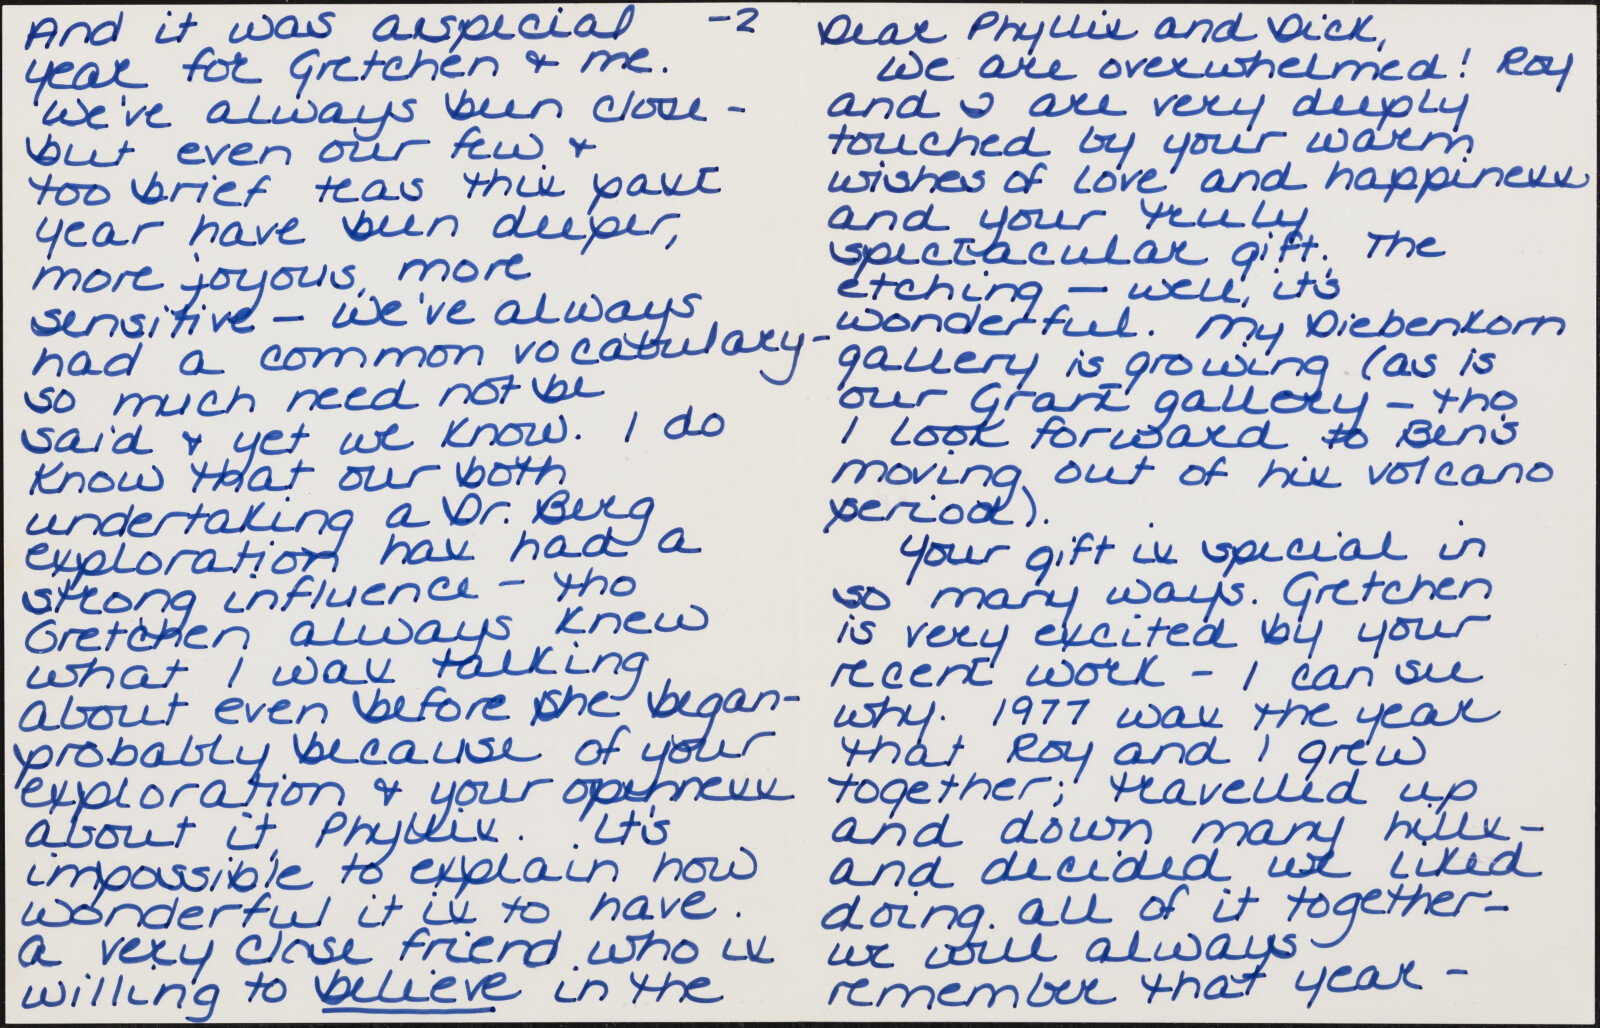 Dear Phyllis and Dick,
We are overwhelmed! Roy
and I are very deeply
touched by your warm
wishes of love and happiness
and your truly
spectacular gift. The
etching — well, it's
wonderful. My Diebenkorn
gallery is growing (as is
our Grant gallery — tho
I look forward to Ben's
moving out of his volcano
period).
Your gift is special in
so many ways. Gretchen
is very excited by your
recent work - I can see
why. 1977 was the year
that Roy and I grew
together; travelled up
and down many hills -
and decided we liked
doing all of it together -
we will always
remember that year -
-2
And it was a special
year for Gretchen & me.
We've always been close -
but even our few &
too brief teas this past
year have been deeper,
more joyous, more
sensitive — we've always
had a common vocabulary -
so much need not be
said & yet we know. I do
know that our both
undertaking a Dr. Berg
exploration has had a
strong influence - tho
Gretchen always knew
what I was talking
about even before she began -
probably because of your
exploration & your openness
about it, Phyllis. It's
impossible to explain how
wonderful it is to have
a very close friend who is
willing to believe in the